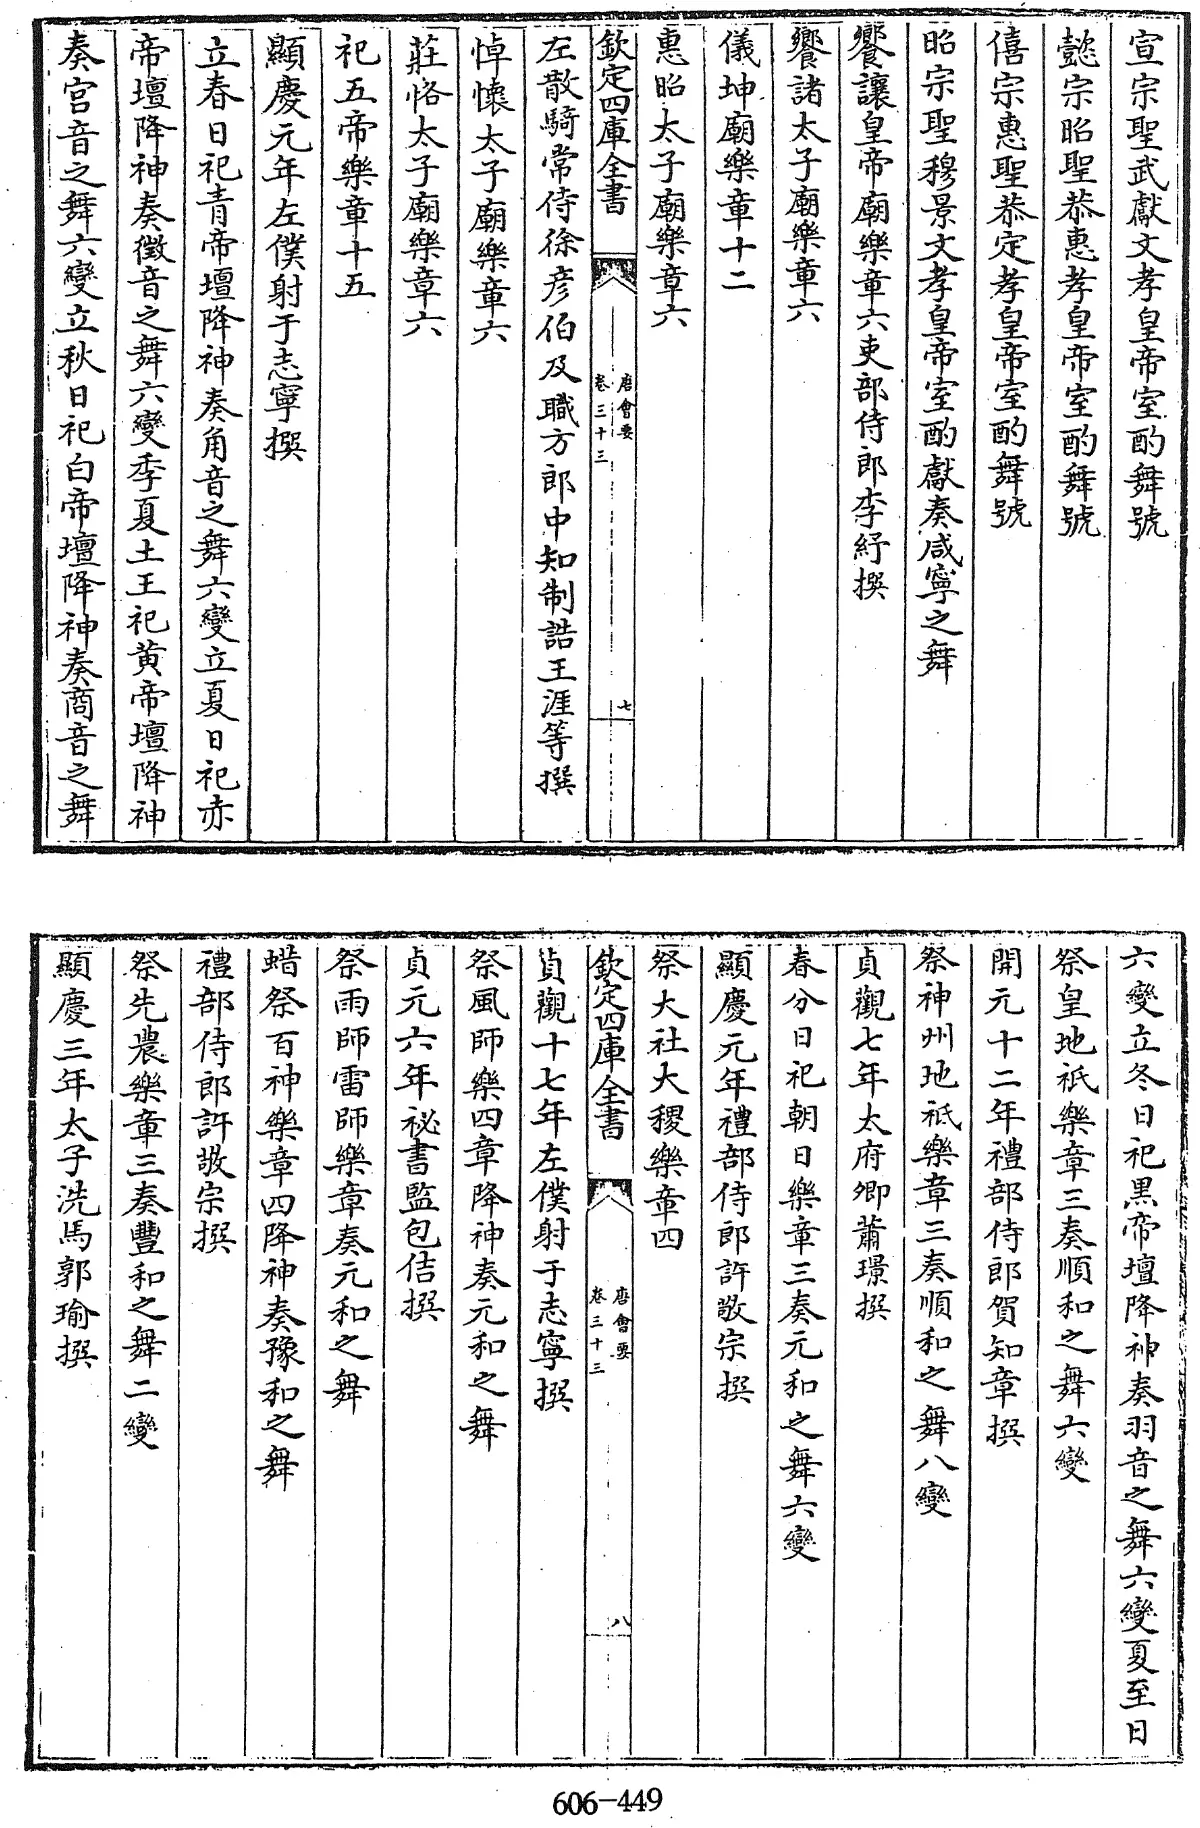 宣宗聖武獻文孝皇帝室酌舞號
懿宗昭聖恭惠孝皇帝室酌舞號
僖宗惠聖恭定孝皇帝室酌舞號
昭宗聖穆景文孝皇帝室酌獻奏咸寧之舞
饗讓皇帝廟樂章六吏部侍郎李紓撰
饗諸太子廟樂章六
儀坤廟樂章十二
惠昭太子廟樂章六
欽定四庫全書
唐會要
卷三十三
七
左散騎常侍徐彦伯及職方郎中知制誥王涯等撰
悼懷太子廟樂章六
莊恪太子廟樂章六
祀五帝樂章十五
顯慶元年左僕射于志寧撰
立春日祀青帝壇降神奏角音之舞六變立夏日祀赤
帝壇降神奏徵音之舞六變季夏土王祀黄帝壇降神
奏宫音之舞六變立秋日祀白帝壇降神奏商音之舞
六變立冬日祀黒帝壇降神奏羽音之舞六變夏至日
祭皇地祇樂章三奏順和之舞六變
開元十二年禮部侍郎賀知章撰
祭神州地祇樂章三奏順和之舞八變
貞觀七年太府卿蕭璟撰
春分日祀朝日樂章三奏元和之舞六變
顯慶元年禮部侍郎許敬宗撰
祭大社大稷樂章四
欽定四庫全書
唐會要
卷三十三
八
貞觀十七年左僕射于志寧撰
祭風師樂四章降神奏元和之舞
貞元六年祕書監包佶撰
祭雨師雷師樂章奏元和之舞
蜡祭百神樂章四降神奏豫和之舞
禮部侍郎許敬宗撰
祭先農樂章三奏豐和之舞二變
顯慶三年太子洗馬郭瑜撰
606-449